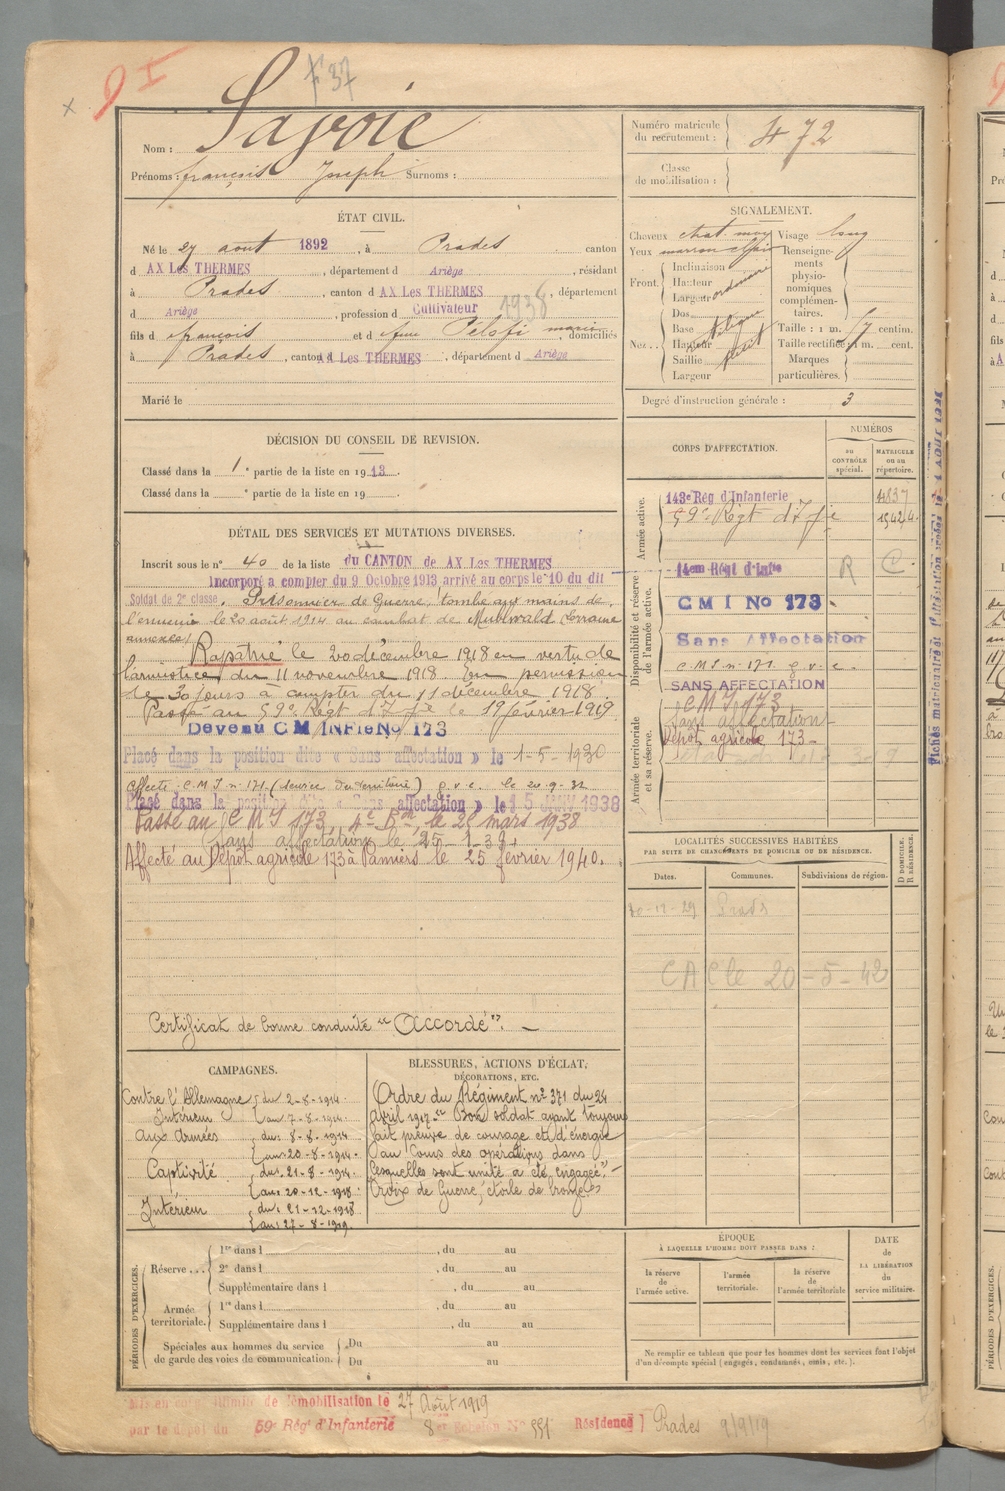 9 I
F 37
x
Nom : Savoie
Prénoms : françois Joseph Surnoms :
Numéro matricule du recrutement : 472
Classe de mobilisation :
ÉTAT CIVIL.
Né le 27 août 1892, à Prades canton
d AX Les THERMES, département d Ariège, résidant
à Prades, canton d AX Les THERMES, département
d Ariège, profession d Cultivateur
1938
fils d françois et d feue Pélofi marie, domiciliés
à Prades, canton d AX Les THERMES, département d Ariège
Marié le
SIGNALEMENT.
Cheveux chat. moy Visage long
Yeux marron clair
Front. Inclinaison
Hauteur
Largeur ordinaire
Nez... Dos
Base
Hauteur
Saillie petit
Largeur
Renseignements physionomiques complémentaires.
Taille : 1 m. 57 centim.
Taille rectifiée : 1 m. cent.
Marques particulières.
Degré d'instruction générale : 3
DÉCISION DU CONSEIL DE REVISION.
Classé dans la 1e partie de la liste en 1913.
Classé dans la e partie de la liste en 19 .
DÉTAIL DES SERVICES ET MUTATIONS DIVERSES.
Inscrit sous le n° 40 de la liste du CANTON de AX Les THERMES
Incorporé a compter du 9 Octobre 1913 arrivé au corps le 10 du dit
Soldat de 2e classe. Prisonnier de Guerre, tombé aux mains de
l'ennemi le 20 août 1914 au combat de Muhlwald Lorraine
annexée)
Rapatrié le 20 décembre 1918 en vertu de
l'armistice du 11 novembre 1918. En permission
de 30 jours à compter du 11 décembre 1918.
Passé au 59e Régt d'Ife le 19 février 1919
Devenu CM INFie No 173
Placé dans la position dite « Sans affectation » le 1-5-1930
Affecté C.M.I n° 171 (service du territoire) g.v.c. le 20.9.32
Placé dans la position dite « Sans affectation » le 15 JANV 1938
Passé au C M I 173, 4e Bon, le 21 mars 1938
Sans affectation le 25-1-39.
Affecté au Dépôt agricole 173 à Pamiers le 25 février 1940.
Certificat de bonne conduite "Accordé".
CORPS D'AFFECTATION.
NUMÉROS
au CONTRÔLE spécial.
MATRICULE ou au répertoire.
Armée active.
143e Rég d'Infanterie 4837
59e Régt d'Ife 15424
Disponibilité et réserve de l'armée active.
14em Régt d'Infie R C
C M I No 173
Sans Affectation
C.M.I n° 171 g.v.c.
SANS AFFECTATION
Armée territoriale et sa réserve.
C M I 173
Sans affectation
Dépôt agricole 173
LOCALITÉS SUCCESSIVES HABITÉES
PAR SUITE DE CHANGEMENTS DE DOMICILE OU DE RÉSIDENCE.
Dates. Communes. Subdivisions de région. D DOMICILE. R RÉSIDENCE.
Prads
CAC le 20-5-42
CAMPAGNES.
Contre l'Allemagne
Intérieur du 2-8-1914
au 7-8-1914
aux Armées du 8-8-1914
au 20-8-1914
Captivité du 21-8-1914
au 20-12-1918
Intérieur du 21-12-1918
au 27-8-1919
BLESSURES, ACTIONS D'ÉCLAT, DÉCORATIONS, ETC.
Ordre du Régiment n° 371 du 24
avril 1917 "Bon soldat ayant toujours
fait preuve de courage et d'énergie
au cours des opérations dans
lesquelles sont unité a été engagée"
Croix de Guerre, étoile de bronze
PÉRIODES D'EXERCICES.
Réserve... 1re dans l , du au
2e dans l , du au
Supplémentaire dans l , du au
Armée territoriale. 1re dans l , du au
Supplémentaire dans l , du au
Spéciales aux hommes du service de garde des voies de communication. Du au
Du au
ÉPOQUE
À LAQUELLE L'HOMME DOIT PASSER DANS :
la réserve de l'armée active.
l'armée territoriale.
la réserve de l'armée territoriale
DATE de LA LIBÉRATION du service militaire.
Ne remplir ce tableau que pour les hommes dont les services font l'objet
d'un décompte spécial (engagés, condamnés, omis, etc.).
Mis en congé illimité de démobilisation le 27 Août 1919
par le dépôt du 59e Rég d'Infanterie 8em Echelon N° 551 Résidence Prades 9/9/19